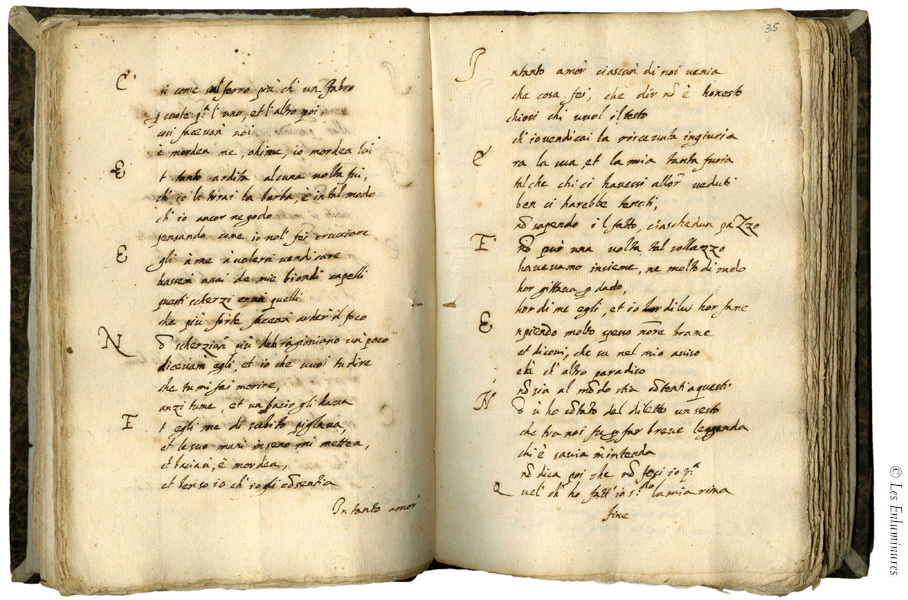 si come sul ferro più ch' un fabro
scuote p.ª l'uno, et l'altro poi,
cosi facevan noi
E
e mordea me, ohime, io mordea lui
t tanto ardita alcuna volta fui,
ch'io li tirai la barba, è in tal modo
ch' io ancor ne godo
pensando come io nol fei crucciare
E
gli à me a volersi vendicare
assai de miei biondi capelli
questi scherzi eran quelli
che più forte facean arder il foco
N
scherzian più ragioniano un poco
diceva egli, et io che vuoi tu dire
che tu mi fai morire,
anzi tu me, et un bacio gli dava
T
t egli me di subito pigliava,
et le sue mani in seno mi mettea,
et baciava, è mordea,
et penso io ch' io gli cõsentia
Intanto amor
35
I
ntanto amor ciascun di noi venia
che cosa fei, che dir nõ è honesto
chiosi chi vuol il testo
ch'io vendicai la ricevuta ingiuria
E
ra la sua et la mia tanta furia
tal che chi ci havessi allor veduti
ben ci harebbe tenuti,
nõ sapendo il fatto, ciaschedun pazzo
nõ pur una volta tal sollazzo
havevamo insieme, ne molto di rado
hor gittava dado,
hor di me egli, et io di lui hor fane
E
mpiendo molto spesso nostre brame
et dicovi, che su nel mio aviso
è ch' altro paradiso
nõ sia al mõdo stia cõtenti a questi
H
o vi ho cõtato del diletto un sesto
che tra noi fu p far breve leggenda
chi è savia m'intenda
nõ dica poi che nõ fezi io p.ª
Q
uel ch' ho fatt'io la mia rima
fine
© Les Enluminures